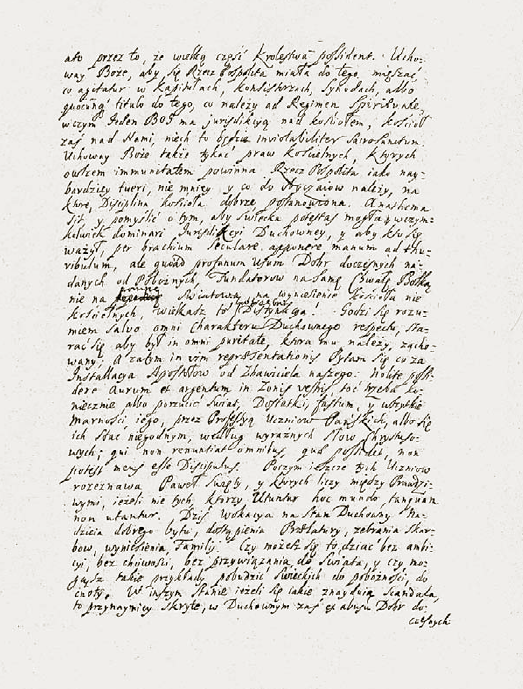 ato przez to, że wielką część Krolestwa possident. Ucho-
way Boże, aby się Rzecz Pospolita miała do tego mięszać
co agitatur w Kapitułach, Konsistorzach, Synodach, albo
quocunq titulo do tego, co należy od Regimen Spirituale,
w czym Jeden BOG ma jurisdikcyą nad kościołem, kościoł
zaś nad Nami, niech to będzie inviolabiliter Sacrosanctum.
Uchoway Boże także tykać praw kościelnych, ktorych
owszem immunitatem powinna Rzecz Pospolita iako nay-
bardziey tueri, nie mniey y co do obyczaiow należy, na
ktore, Disciplina kościoła dobrze postanowiona. Anathema
sit, y pomyslić o tym, aby swiecka potestas mogła w czym-
kolwiek dominari Jurisdikcyi Duchowney, y aby kto się
ważył, per brachium seculare apponere manum ad thu-
ribulum, ale quoad profanum Usum Dobr doczesnych na-
danych od Pobożnych Fundatorow na samą Chwałę Boską
nie na Swiatową, na wyniesienie kościoła nie
kościelnych, godzi się rozu-
miem salvo omni Charakteru Duchownego respectu, sta-
rać się aby był in omni puritate, ktora mu należy, zacho-
wany. A zatym in vim reprezentationis pytam się co za
Installacya Apostołow od Zbawiciela naszego: nolite possi-
dere Aurum et argentum in Zonis vestris toć trzeba ko-
niecznie albo porzucić świat, Dostatki, fastum, y wszytkie
marności iego, przez Professyą Uczniow Pańskich, albo się
ich stać niegodnym, według wyraznych słow Chrystuso-
wych; qui non renuntiat omnibus, quæ possidet, non
potest meus esse Discipulus. Poczym ieszcze tych Uczniow
rozeznawa Paweł Swięty, y ktorych liczy między Prawdzi-
wymi, ieżeli nie tych, ktorzy Utuntur hoc mundo tanquam
non utantur. Dziś Wokacya na Stan Duchowny Na-
dzieia dobrego bytu, dostąpienia Prelatury, zebrania Skar-
bow, wyniesienia Familij. Czy możeż się to dziać bez ambi-
cyi, bez chciwości, bez przywiązania do świata, y czy mo-
gąsz takie przykłady pobudzić świeckich do pobożności, do
cnoty. W inszym Stanie ieżeli się iakie znayduią Scandala,
to przynaymniey Skryte, w Duchownym zaś ex abusu Dobr do-
czesnych